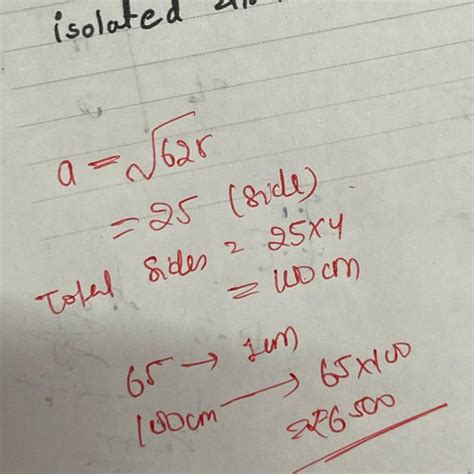 isolated
a = √625
= 25 (side)
Total sides = 25×4
= 100 cm
65 → 1cm
100cm → 65×100
= ₹6500